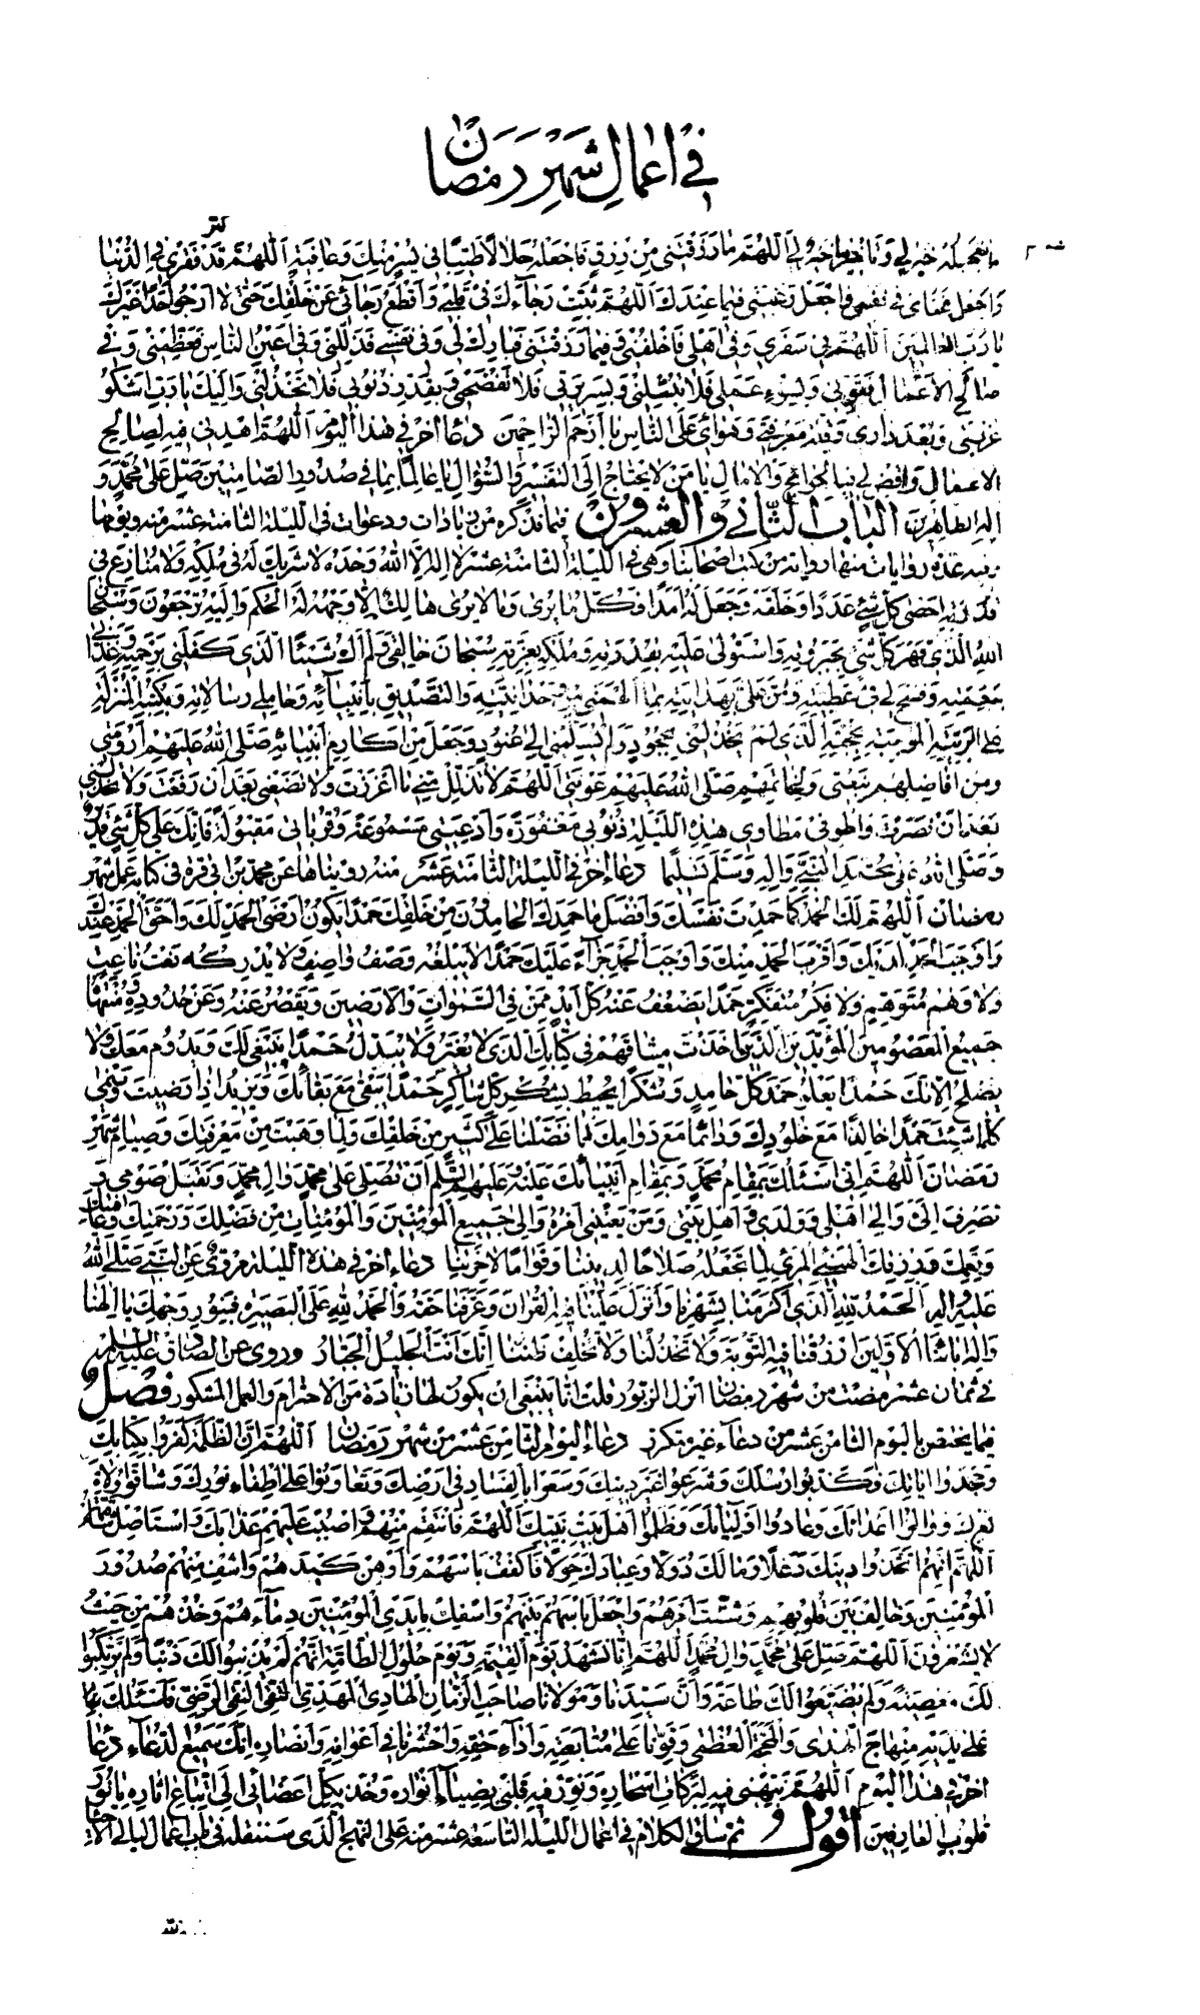 في اعمال شهر رمضان
خيرا لي اللهم ما رزقتني من رزق فاجعله حلالا طيبا في يسر منك وعافية اللهم سد فقري في الدنيا
واجعل غناي في نفسي واجعل رغبتي فيما عندك اللهم ثبت رجاءك في قلبي واقطع رجائي عن خلقك حتى لا ارجو احدا غيرك
يا رب العالمين اللهم في سفري وفي اهلي فاخلفني وفيما رزقتني فبارك لي وفي نفسي فذللني وفي اعين الناس فعظمني وفي
صالح الاعمال فقوني وبسوء عملي فلا تبسلني وبسريرتي فلا تفضحني وبقدر ذنوبي فلا تخذلني واليك يا رب اشكو
غربتي وبعد داري وقلة معرفتي وهواني على الناس يا ارحم الراحمين دعاء اخر في هذا اليوم اللهم اهدني فيه لصالح
الاعمال واقض لي فيه الحوائج والامال يا من لا يحتاج الى التفسير والسؤال يا عالما بما في صدور الصامتين صل على محمد و
اله الطاهرين الباب الثاني والعشرون فيما نذكره من زيادات ودعوات في الليلة الثامنة عشر منه ويومها
وفيه عدة روايات منها رواية من كتب اصحابنا وهي في الليلة الثامنة عشر لا اله الا الله وحده لا شريك له في ملكه ولا منازع في
قدرته احصى كل شيء عددا وخلقه وجعل له امدا فكل ما يرى وما لا يرى هالك الا وجهه له الحكم واليه ترجعون وسبحان
الله الذي قهر كل شيء بجبروته واستولى عليه بقدرته وملكه بعزته سبحان خالقي ولم اك شيئا الذي كفلني برحمته وغذاني
بنعمته وفسح لي في عطيته ومن علي بهدايته بما الهمني من وحدانيته والتصديق بانبيائه وحاملي رسالاته وبكتبه المنزلة
على البرية الموجبة لحجته الذي لم يخذلني بجحود ولم يسلمني الى عنود وجعل من اكارم انبيائه صلى الله عليهم ارومتي
ومن افاضلهم نبعتي ولخاتمهم صلى الله عليهم عوتي اللهم لا تذلل مني ما اعززت ولا تضعني بعد ان رفعت ولا تخذلني
بعد ان نصرت واطو في مطاوي هذه الليلة ذنوبي مغفورة وادعيتي مسموعة وقرباني مقبولة فانك على كل شيء قدير
وصلى الله على محمد النبي واله وسلم تسليما دعاء اخر في الليلة الثامنة عشر منه رويناها عن محمد بن ابي قرة في كتابه عمل شهر
رمضان اللهم لك الحمد كما حمدت نفسك وافضل ما حمدك الحامدون من خلقك حمدا يكون ارضى الحمد لك واحق الحمد عندك
واحب الحمد اليك واقرب الحمد منك واوجب الحمد جزاء عليك حمدا لا يبلغه وصف واصف ولا يدركه نعت ناعت
ولا وهم متوهم ولا فكر متفكر حمدا يضعف عنه كل احد ممن في السموات والارضين ويقصر عنه وعن حدوده ومنتهاه
جميع المعصومين المؤيدين الذين اخذت ميثاقهم في كتابك الذي لا يغير ولا يبدل حمدا ينبغي لك ويدوم معك ولا
يصلح الا لك حمدا يعلو حمد كل حامد وشكرا يحيط بشكر كل شاكر حمدا يبقى مع بقائك ويزيد اذا رضيت وينمى
كلما شئت حمدا خالدا مع خلودك ودائما مع دوامك كما فضلتنا على كثير من خلقك ولما وهبت من معرفتك وصيام شهر
رمضان اللهم اني اسئلك بمقام محمد وبمقام انبيائك عليه وعليهم السلم ان تصلي على محمد وال محمد وتقبل صومي و
تصرف الي والى اهلي وولدي واهل بيتي ومن يعنيني امره والى جميع المؤمنين والمؤمنات من فضلك ورحمتك وعافيتك
ونعمك ورزقك الهنيء المريء ما تجعله صلاحا لديننا وقواما لاخرتنا دعاء اخر في هذه الليلة مروي عن النبي صلى الله
عليه واله الحمد لله الذي اكرمنا بشهرنا وانزل علينا فيه القران وعرفنا حقه والحمد لله على البصيرة فبنور وجهك يا الهنا
واله ابائنا الاولين ارزقنا فيه التوبة ولا تخذلنا ولا تخلف ظننا انك انت الجليل الجبار وروي عن الصادق عليه السلم
في ثمان عشر مضت من شهر رمضان انزل الزبور قلت انا ينبغي ان يكون لها زيادة من الاحترام والعمل المشكور فصل
فيما يختص باليوم الثامن عشر من دعاء غير متكرر دعاء اليوم الثامن عشر من شهر رمضان اللهم ان الظلمة كفروا بكتابك
وجحدوا اياتك وكذبوا رسلك وشرعوا غير دينك وسعوا بالفساد في ارضك وتعاونوا على اطفاء نورك وشاقوا ولاة
امرك ووالوا اعداءك وعادوا اولياءك وظلموا اهل بيت نبيك اللهم فانتقم منهم واصبب عليهم عذابك واستاصل شافتهم
اللهم انهم اتخذوا دينك دغلا ومالك دولا وعبادك خولا فاكفف باسهم واوهن كيدهم واشف منهم صدور
المؤمنين وخالف بين قلوبهم وشتت امرهم واجعل باسهم بينهم واسفك بايدي المؤمنين دماءهم وخذهم من حيث
لا يشعرون اللهم صل على محمد وال محمد اللهم انا نشهد يوم القيمة ويوم حلول الطامة انهم لم يذنبوا لك ذنبا ولم يرتكبوا
لك معصية ولم يضيعوا لك طاعة وان سيدنا ومولانا صاحب الزمان الهادي المهدي التقي النقي الرضي فاسئلك بنا
على يديه منهاج الهدى والمحجة العظمى وقونا على متابعته واداء حقه واحشرنا في اعوانه وانصاره انك سميع الدعاء دعاء
اخر في هذا اليوم اللهم نبهني فيه لبركات اسحاره ونور فيه قلبي بضياء انواره وخذ بكل اعضائي الى اتباع اثاره يا نور
قلوب العارفين اقول ثم ساق الكلام في اعمال الليلة التاسعة عشر منه على النهج الذي سننقله في باب اعمال ليالي الاحياء